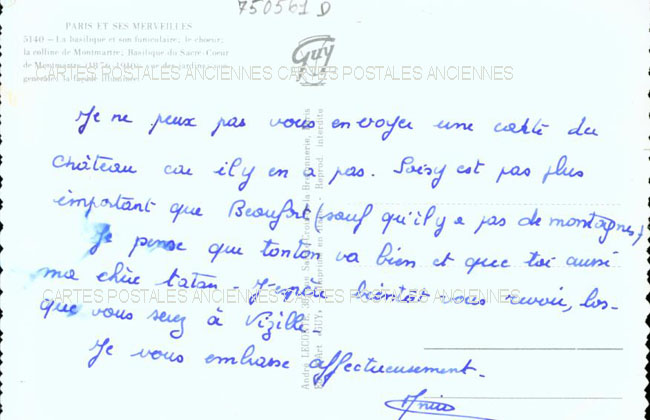 750561 D
PARIS ET SES MERVEILLES
5140 - La basilique et son funiculaire; le choeur;
la colline de Montmartre; Basilique du Sacré-Coeur
de Montmartre vue des jardins;
Guy
CARTES POSTALES ANCIENNES CARTES POSTALES ANCIENNES
Je ne peux pas vous envoyer une carte du
château car il y en a pas. Soisy est pas plus
important que Beaufort (sauf qu'il y a pas de montagnes)
Je pense que tonton va bien et que toi aussi
ma chère tatan - J'espère bientôt vous revoir, lors-
que vous serez à Vizille.
Je vous embrasse affectueusement.
CARTES POSTALES ANCIENNES CARTES POSTALES ANCIENNES